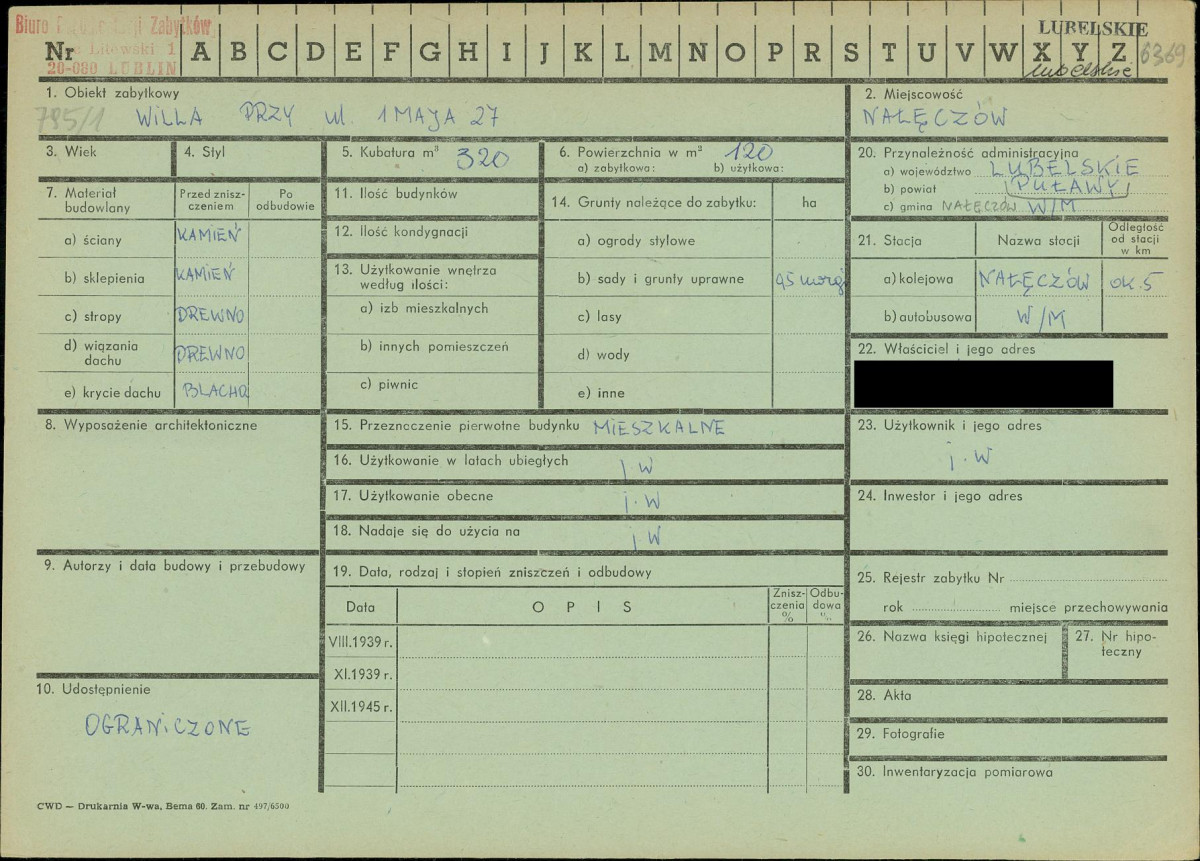 Biuro Zabytków
Litewski 1
20-080 LUBLIN
Nr A B C D E F G H I J K L M N O P R S T U V W X Y Z
LUBELSKIE
lubelskie
6369
1. Obiekt zabytkowy
795/1 WILLA PRZY ul. 1 MAJA 27
2. Miejscowość
NAŁĘCZÓW
3. Wiek
4. Styl
5. Kubatura m³ 320
6. Powierzchnia w m² 120
a) zabytkowa: b) użytkowa:
20. Przynależność administracyjna
a) województwo LUBELSKIE
b) powiat (PUŁAWY)
c) gmina NAŁĘCZÓW W/M
7. Materiał budowlany
Przed zniszczeniem
Po odbudowie
a) ściany KAMIEŃ
b) sklepienia KAMIEŃ
c) stropy DREWNO
d) wiązania dachu DREWNO
e) krycie dachu BLACHA
11. Ilość budynków
12. Ilość kondygnacji
13. Użytkowanie wnętrza według ilości:
a) izb mieszkalnych
b) innych pomieszczeń
c) piwnic
14. Grunty należące do zabytku: ha
a) ogrody stylowe
b) sady i grunty uprawne
c) lasy
d) wody
e) inne
21. Stacja Nazwa stacji Odległość od stacji w km
a) kolejowa NAŁĘCZÓW OK. 5
b) autobusowa W/M
22. Właściciel i jego adres
8. Wyposażenie architektoniczne
15. Przeznaczenie pierwotne budynku MIESZKALNE
16. Użytkowanie w latach ubiegłych j W
17. Użytkowanie obecne j. W
18. Nadaje się do użycia na j W
23. Użytkownik i jego adres
j. W
24. Inwestor i jego adres
9. Autorzy i data budowy i przebudowy
19. Data, rodzaj i stopień zniszczeń i odbudowy
Data OPIS Zniszczenia % Odbudowa %
VIII.1939 r.
XI.1939 r.
XII.1945 r.
25. Rejestr zabytku Nr
rok miejsce przechowywania
26. Nazwa księgi hipotecznej
27. Nr hipoteczny
10. Udostępnienie
OGRANICZONE
28. Akta
29. Fotografie
30. Inwentaryzacja pomiarowa
CWD — Drukarnia W-wa, Bema 60. Zam. nr 497/6500